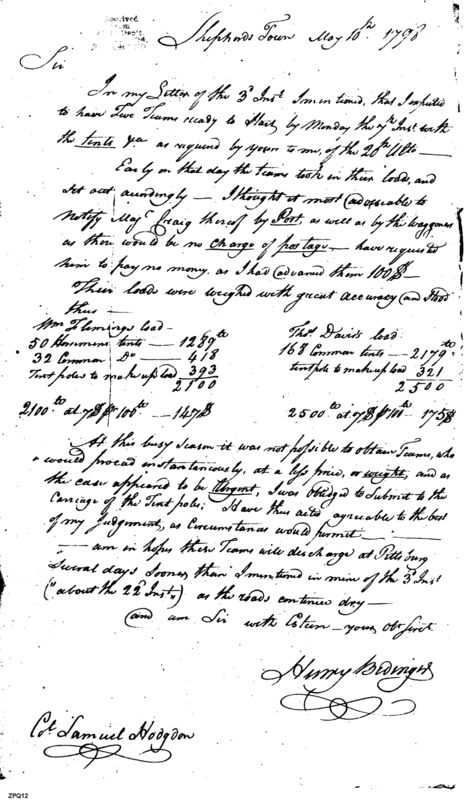 Received
Shepherds Town May 10th. 1798
Sir
In my Letter of the 3d Inst. I mentioned, that I expected
to have Two Teams ready to Start by Monday the 7th Inst. with
the tents, &ca as required by yours to me, of the 20th Ulto —
Early on that day the teams took in their load, and
set out accordingly — I thought it most adviseable to
notify Majr Craig thereof by Post, as well as by the Waggoners
as there would be no charge of postage — have requested
him to pay no money, as I had advanced them 100$ —
Their loads were weighed with great accuracy and Stood
thus —
Wm Flemings load —
50 Horsemens tents — 1289 lb
32 Common Do — 418
Tent poles to make up load 393
2100
2100 lb at 7$ ⅌ 100 lb — 147$
Thos. Davis's load
168 Common tents — 2179 lb
tent poles to make up load 321
2500
2500 lb at 7$ ⅌ 100 lb — 175$
At this busy season it was not possible to obtain Teams, who
would proceed instantaneously, at a less price, or weight, and as
the case appeared to be Urgent, I was obliged to Submit to the
Carriage of the Tent poles; I have thus acted agreeable to the best
of my Judgement, as Circumstances would permit —
— am in hopes these Teams will discharge at Pittsburg
Several days sooner than I mentioned in mine of the 3d Inst
("about the 22 Inst") as the roads continue dry —
and am Sir with Esteem — your Obt Servt
Henry Bedinger
Col Samuel Hodgdon
ZPQ12